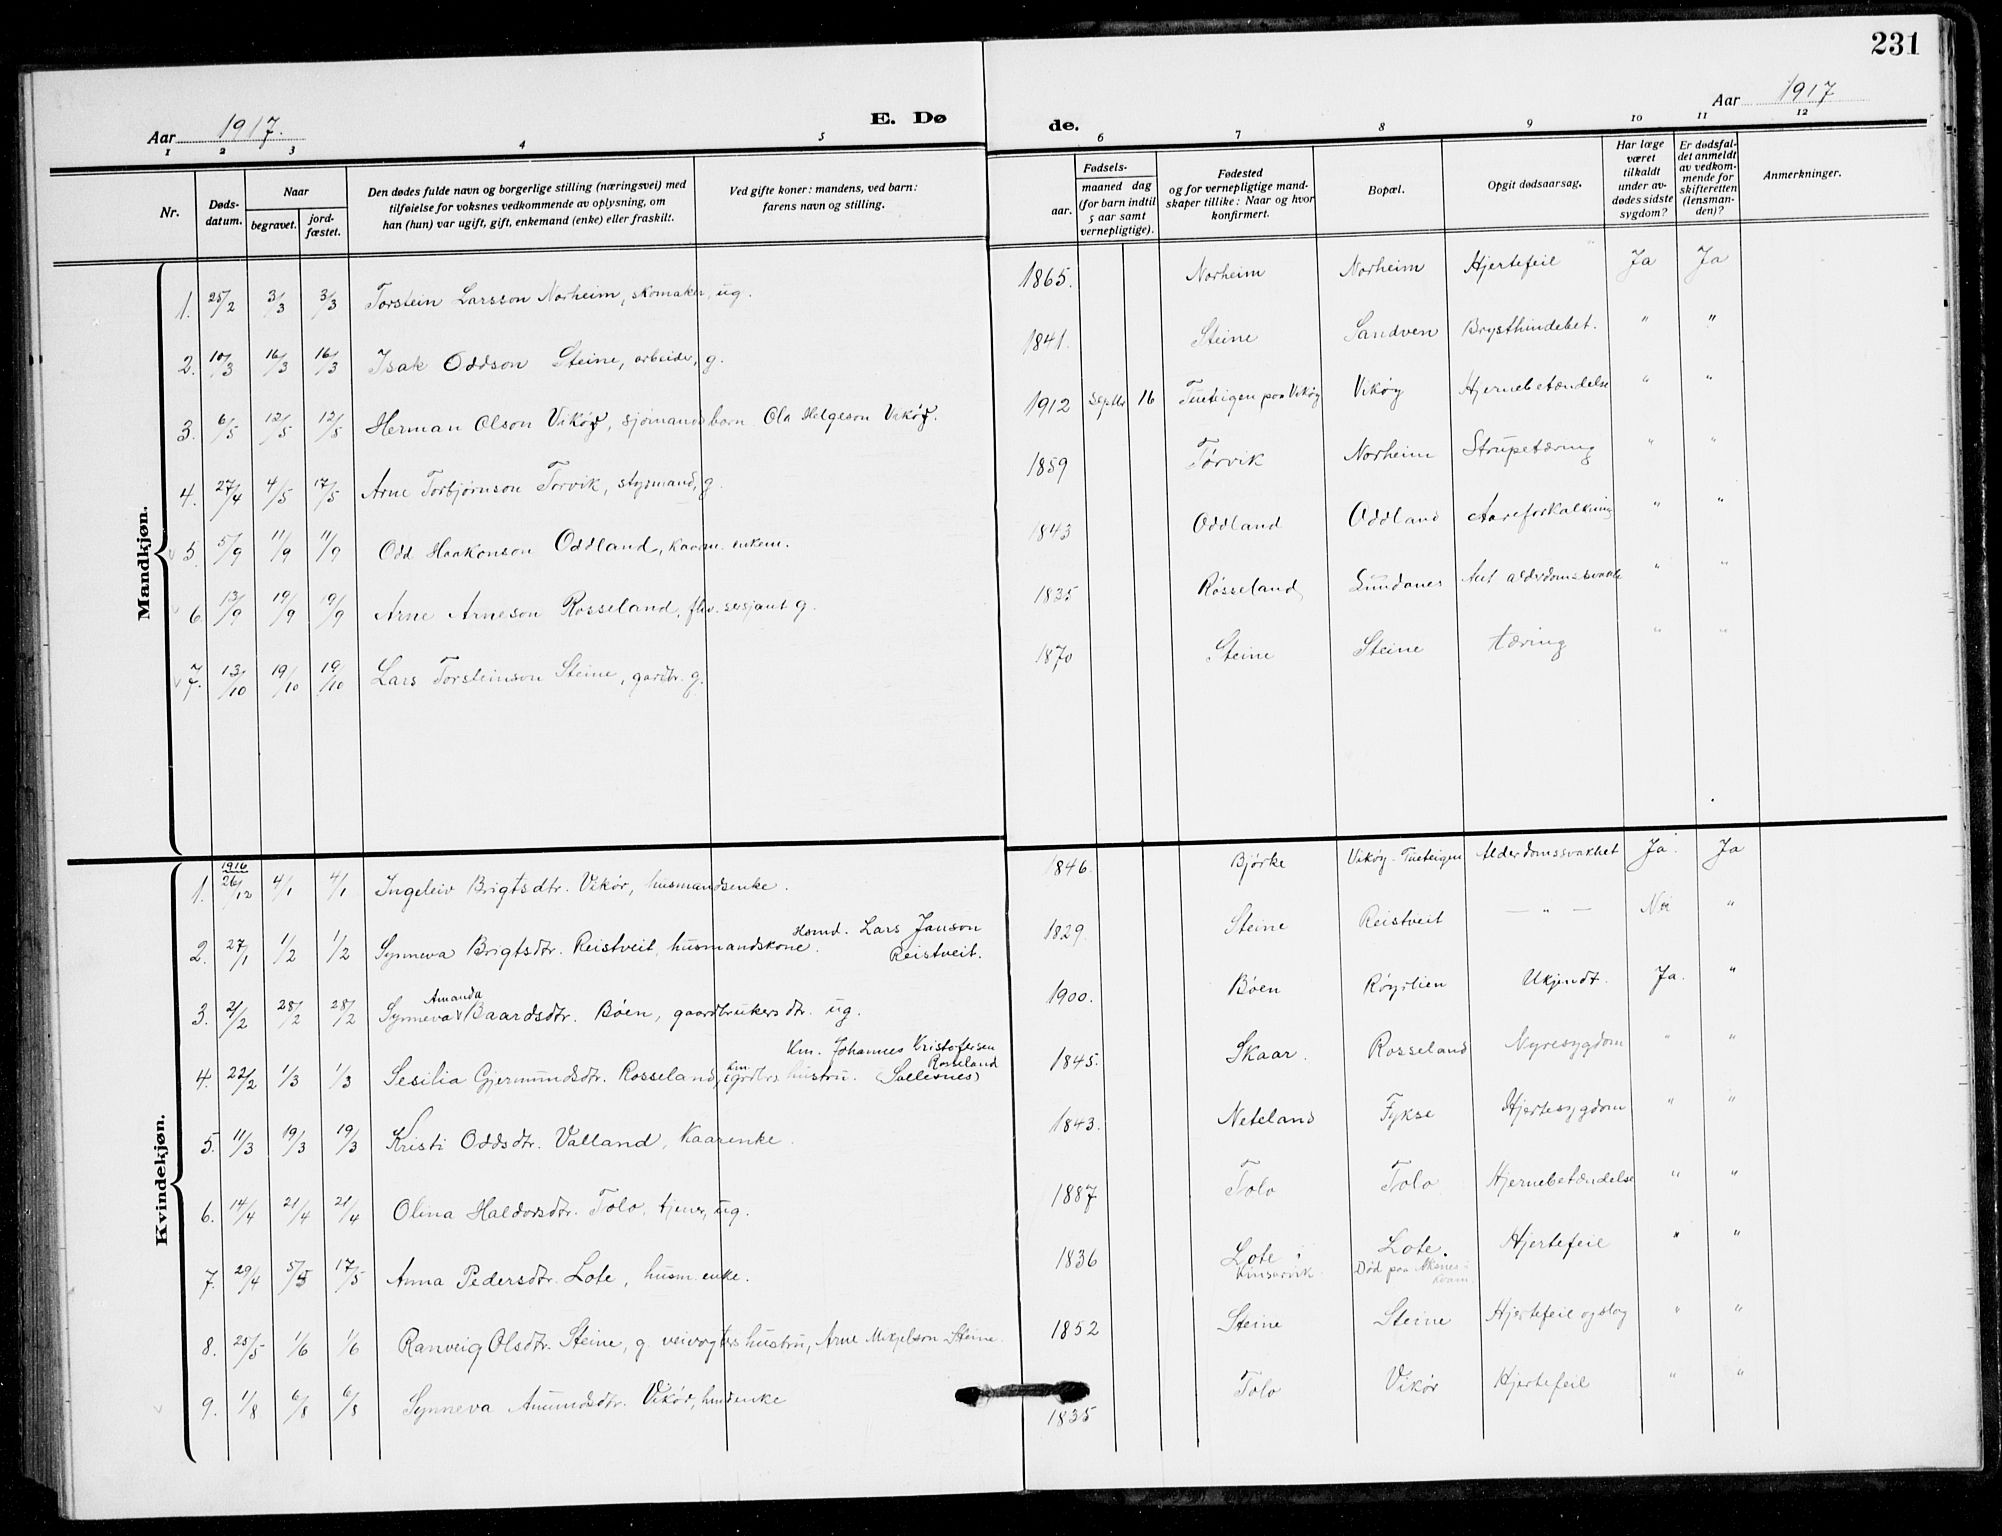 231
Aar 1917. E. Dø de. Aar 1917
1 2 3 4 5 6 7 8 9 10 11 12
Nr.
Døds-datum.
Naar
begravet.
jord-fæstet.
Den dødes fulde navn og borgerlige stilling (næringsvei) med
tilføielse for voksnes vedkommende av oplysning, om
han (hun) var ugift, gift, enkemand (enke) eller fraskilt.
Ved gifte koner: mandens, ved barn:
farens navn og stilling.
Fødsels-
aar.
maaned dag
(for barn indtil
5 aar samt
vernepligtige).
Fødested
og for vernepligtige mand-
skaper tillike: Naar og hvor
konfirmert.
Bopæl.
Opgit dødsaarsag.
Har læge
været
tilkaldt
under av-
dødes sidste
sygdom?
Er dødsfal-
det anmeldt
av vedkom-
mende for
skifteretten
(lensman-
den)?
Anmerkninger.
Mandkjøn.
1. 25/2 3/3 3/3 Torstein Larsson Norheim, skomaker, ug. 1865. Norheim Norheim Hjertefeil Ja Ja
2. 10/3 16/3 16/3 Isak Oddson Steine, arbeider, g. 1841. Steine Sandven Brysthindebet. " "
3. 6/5 12/5 12/5 Herman Olson Vikøy, sjømands barn Ola Helgeson Vikøy. 1912 Septbr 16 Tueteigen paa Vikøy Vikøy Hjernebetændelse " "
4. 27/4 4/5 17/5 Arne Torbjørnson Torvik, stysmand, g. 1859 Tørvik Norheim Strupetæring " "
5. 5/9 11/9 11/9 Odd Haakonson Oddland, kaarm. enkem. 1843 Oddland Oddland Aareforkalkning " "
6 13/9 19/9 19/9 Arne Arneson Rosseland, fhv. sersjant g. 1835 Røsseland Sundanes Ant alderdomssvakhe " "
7. 13/10 19/10 19/10 Lars Torsteinson Steine, gardbr. g. 1870 Steine Steine tæring " "
Kvindekjøn.
1. 1916 26/12 4/1 4/1 Ingeleiv Brigtsdtr. Vikør, husmandsenke. 1846. Bjørke Vikøy-Tueteigen Alderdomssvakhet Ja. Ja
2. 27/1 1/2 1/2 Synneva Brigtsdtr. Reistveit, husmandskone. Hsmd. Lars Janson Reistveit. 1829. Steine Reistveit — " — Nei "
3. 21/2 28/2 28/2 Synneva Amanda Baardsdtr. Böen, gaardbrukers dtr. ug. 1900. Böen Røyslien Ukjendt. Ja. "
4. 22/2 1/3 1/3 Sesilia Gjermundsdtr. Rosseland, km. grdbrs hustru. Km. Johannes Kristofersen Rosseland (Sollesnes) 1845. Skaar. Rosseland Nyresygdom " "
5. 11/3 19/3 19/3 Kristi Oddsdtr. Valland, Kaarenke. 1843. Neteland Fykse Hjertesygdom " "
6. 14/4 21/4 21/4 Olina Haldorsdtr. Tolo, tjener, ug. 1887 Tolo Tolo Hjernebetændelse " "
7. 29/4 5/5 17/5 Anna Pedersdtr. Lote, husm. enke. 1836 Lote i Kinsarvik. Lote. Død paa Aksnes i Kvam. Hjertefeil " "
8. 25/5 1/6 1/6 Ranveig Olsdtr. Steine, g. veivogters hustru, Arne Mikjelson Steine. 1852 Steine Steine Hjertefeil og slag " "
9. 1/8 6/8 6/8 Synneva Amundsdtr. Vikør, husmenke 1835 Tolo Vikør Hjertefeil " "